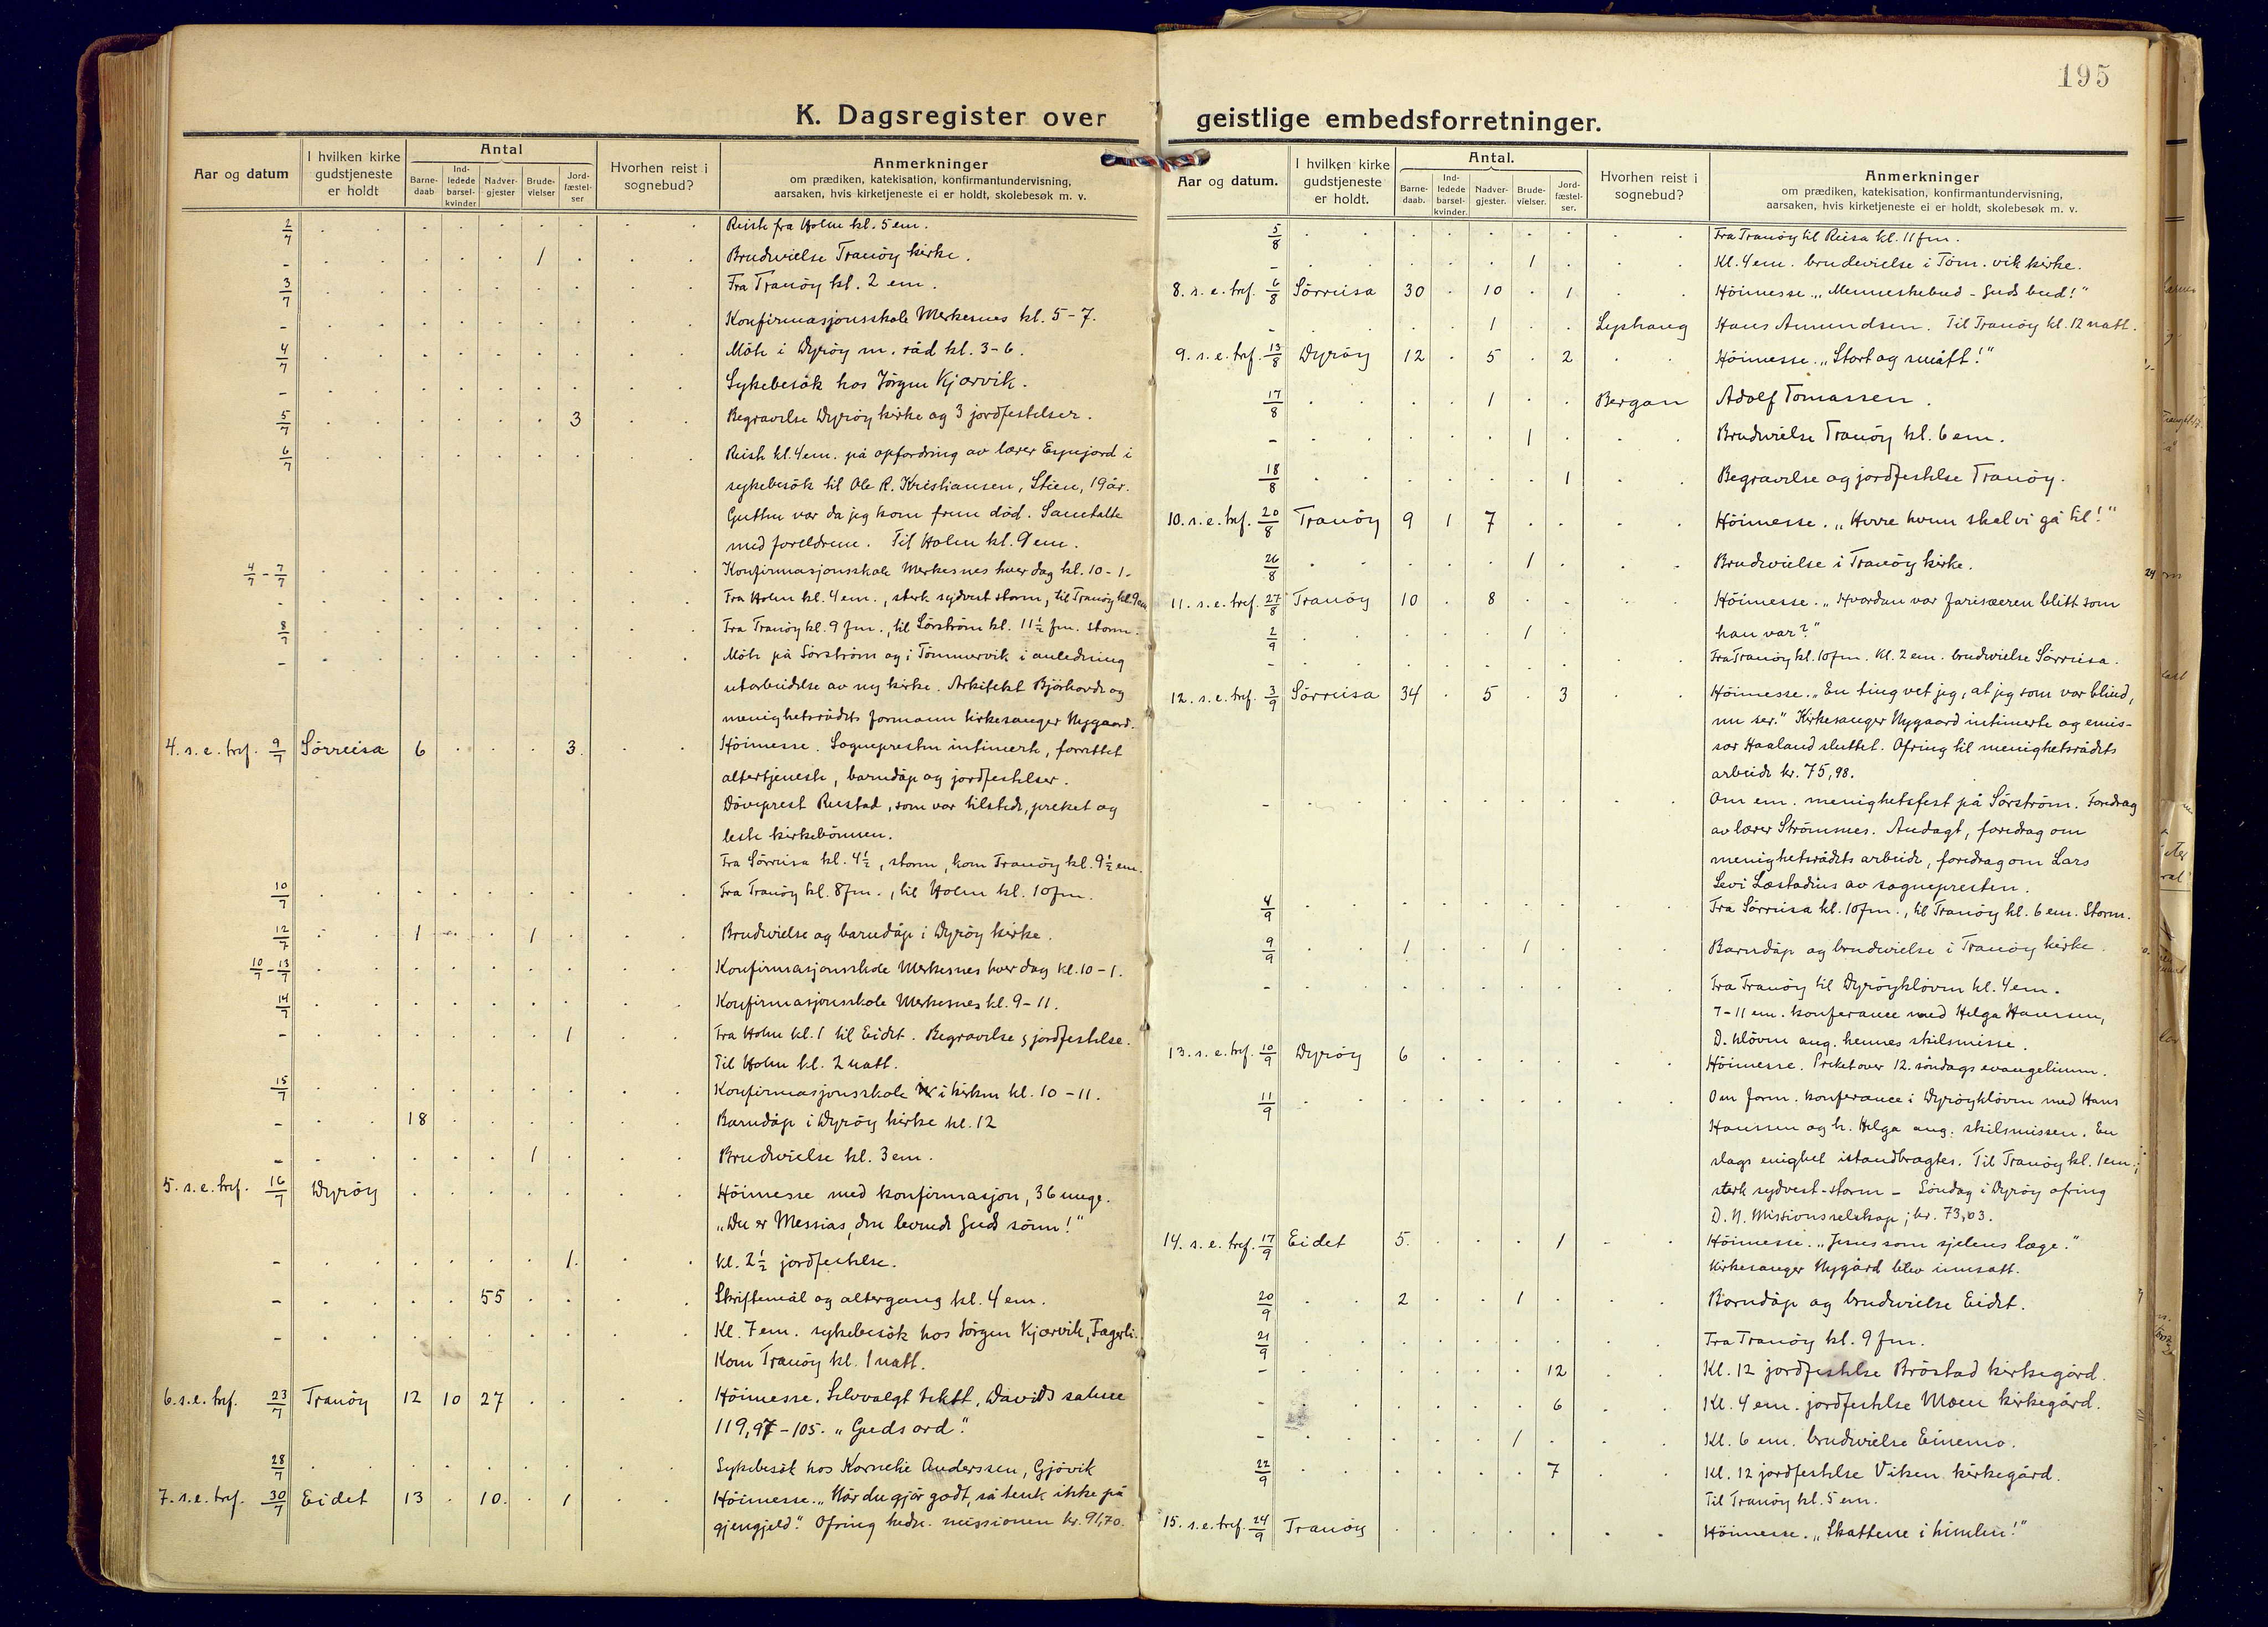 195
K. Dagsregister over
Aar og datum
I hvilken kirke gudstjeneste er holdt
Antal
Barne-daab
Ind-ledede barsel-kvinder
Nadver-gjester
Brude-vielser
Jord-fæstel-ser
Hvorhen reist i sognebud?
Anmerkninger
om prædiken, katekisation, konfirmantundervisning,
aarsaken, hvis kirketjeneste ei er holdt, skolebesøk m. v.
2/7 Reiste fra Holm kl. 5 em.
- 1 Brudevielse Tranöy kirke.
3/7 Fra Tranöy kl. 2 em.
- Konfirmasjonsskole Merkesnes kl. 5-7.
4/7 Möte i Dyröy m. råd kl. 3-6.
- Sykebesök hos Jörgen Kjærvik.
5/7 3 Begravelse Dyröy kirke og 3 jordfestelser.
6/7 Reiste kl. 4 em. på opfordring av lærer Espejord i
sykebesök til Ole R. Kristiansen, Stien, 19 år.
Gutten var da jeg kom frem död. Samtalte
med foreldrene. Til Holm kl. 9 em.
4/7 - 7/7 Konfirmasjonsskole Merkesnes hver dag kl. 10-1.
- Fra Holm kl. 4 em., sterk sydvest storm, til Tranöy kl. 9 em
8/7 Fra Tranöy kl. 9 fm., til Sörström kl. 11 1/2 fm. Storm.
- Möte på Sörström og i Tömmervik i anledning
utarbeidelse av ny kirke. Arkitekt Björhovde og
menighetsrådets formann kirkesanger Nygaard.
4. s. e. tref. 9/7 Sörreisa 6 3 Höimesse. Sognepresten intimerte, forrettet
altertjeneste, barnedåp og jordfestelser.
Döveprest Rustad, som var tilstede, preket og
leste kirkebönnen.
Fra Sörreisa kl. 4 1/2, storm, kom Tranöy kl. 9 1/2 em.
10/7 Fra Tranöy kl. 8 fm., til Holm kl. 10 fm.
12/7 1 1 Brudevielse og barnedåp i Dyröy kirke.
10/7 - 13/7 Konfirmasjonsskole Merkesnes hver dag kl. 10-1.
14/7 Konfirmasjonsskole Merkesnes kl. 9-11.
- 1 Fra Holm kl. 1 til Eidet. Begravelse og jordfestelse.
Til Holm kl. 2 natt.
15/7 Konfirmasjonsskole i kirken kl. 10-11.
- 18 Barnedåp i Dyröy kirke kl. 12
- 1 Brudevielse kl. 3 em.
5. s. e. tref. 16/7 Dyröy Höimesse med konfirmasjon, 36 unge.
"Du er Messias, den levende Guds sönn!"
- 1. kl. 2 1/2 jordfestelse.
- 55 Skriftemål og altergang kl. 4 em.
- Kl. 7 em. sykebesök hos Jörgen Kjærvik, Fagerli.
Kom Tranöy kl. 1 natt.
6. s. e. tref. 23/7 Tranöy 12 10 27 Höimesse. Selvvalgt tekst, Davids salme
119, 97-105. "Guds ord".
28/7 Sykebesök hos Kornelie Anderssen, Gjövik
7. s. e. tref. 30/7 Eidet 13 10. 1 Höimesse. "Når du gjör godt, så tenk ikke på
gjengjeld." Ofring hedn. missionen kr. 91,70.
geistlige embedsforretninger.
Aar og datum.
I hvilken kirke gudstjeneste er holdt.
Antal.
Barne-daab.
Ind-ledede barsel-kvinder.
Nadver-gjester.
Brude-vielser.
Jord-fæstel-ser.
Hvorhen reist i sognebud?
Anmerkninger
om prædiken, katekisation, konfirmantundervisning,
aarsaken, hvis kirketjeneste ei er holdt, skolebesøk m. v.
5/8 Fra Tranöy til Reisa kl. 11 fm.
- 1 Kl. 4 em. brudevielse i Töm. vik kirke.
8. s. e. tref. 6/8 Sörreisa 30 10 1 Höimesse. "Menneskebud - Guds bud!"
- 1 Lyshaug Hans Amundsen. Til Tranöy kl. 12 natt.
9. s. e. tref. 13/8 Dyröy 12 5 2 Höimesse. "Stort og smått!"
17/8 1 Bergan Adolf Tomassen.
- 1 Brudevielse Tranöy kl. 6 em.
18/8 1 Begravelse og jordfestelse Tranöy.
10. s. e. tref. 20/8 Tranöy 9 1 7 Höimesse. "Herre hvem skal vi gå til!"
26/8 1 Brudevielse i Tranöy kirke.
11. s. e. tref. 27/8 Tranöy 10 8 Höimesse. "Hvordan var fariseeren blitt som
han var?"
2/9 1
- Fra Tranöy kl. 10 fm. Kl. 2 em. brudevielse Sörreisa.
12. s. e. tref. 3/9 Sörreisa 34 5 3 Höimesse. "En ting vet jeg, at jeg som var blind,
nu ser." Kirkesanger Nygaard intimerte og emis-
sær Haaland sluttet. Ofring til menighetsrådets
arbeide kr. 75,98.
- Om em. menighetsfest på Sörström. Foredrag
av lærer Strömsnes. Andagt, foredrag om
menighetsrådets arbeide, foredrag om Lars
Levi Læstadius av sognepresten.
4/9 Fra Sörreisa kl. 10 fm., til Tranöy kl. 6 em. Storm.
9/9 1 1 Barnedåp og brudevielse i Tranöy kirke.
- Fra Tranöy til Dyröyklöven kl. 4 em.
7-11 em. konferance med Helga Hansen,
D. klöven ang. hennes skilsmisse.
13. s. e. tref. 10/9 Dyröy 6 Höimesse. Preket over 12. söndags evangelium.
11/9 Om form. konferance i Dyröyklöven med Hans
Hansen og h. Helga ang. skilsmissen. En
slags enighet istandbragtes. Til Tranöy kl. 1 em.;
sterk sydvest-storm - Söndag i Dyröy ofring
D. N. Missionsselskap; kr. 73,03.
14. s. e. tref. 17/9 Eidet 5. 1 Höimesse. "Jesus som sjelens læge."
Kirkesanger Nygård blev innsatt.
20/9 2 1 Barnedåp og brudevielse Eidet.
21/9 Fra Tranöy kl. 9 fm.
- 12 Kl. 12 jordfestelse Bröstad kirkegård.
- 6 Kl. 4 em. jordfestelse Moen kirkegård.
- 1 Kl. 6 em. brudevielse Einemo.
22/9 7 Kl. 12 jordfestelse Viken kirkegård.
Til Tranöy kl. 5 em.
15. s. e. tref. 24/9 Tranöy Höimesse. "Skattene i himlen!"